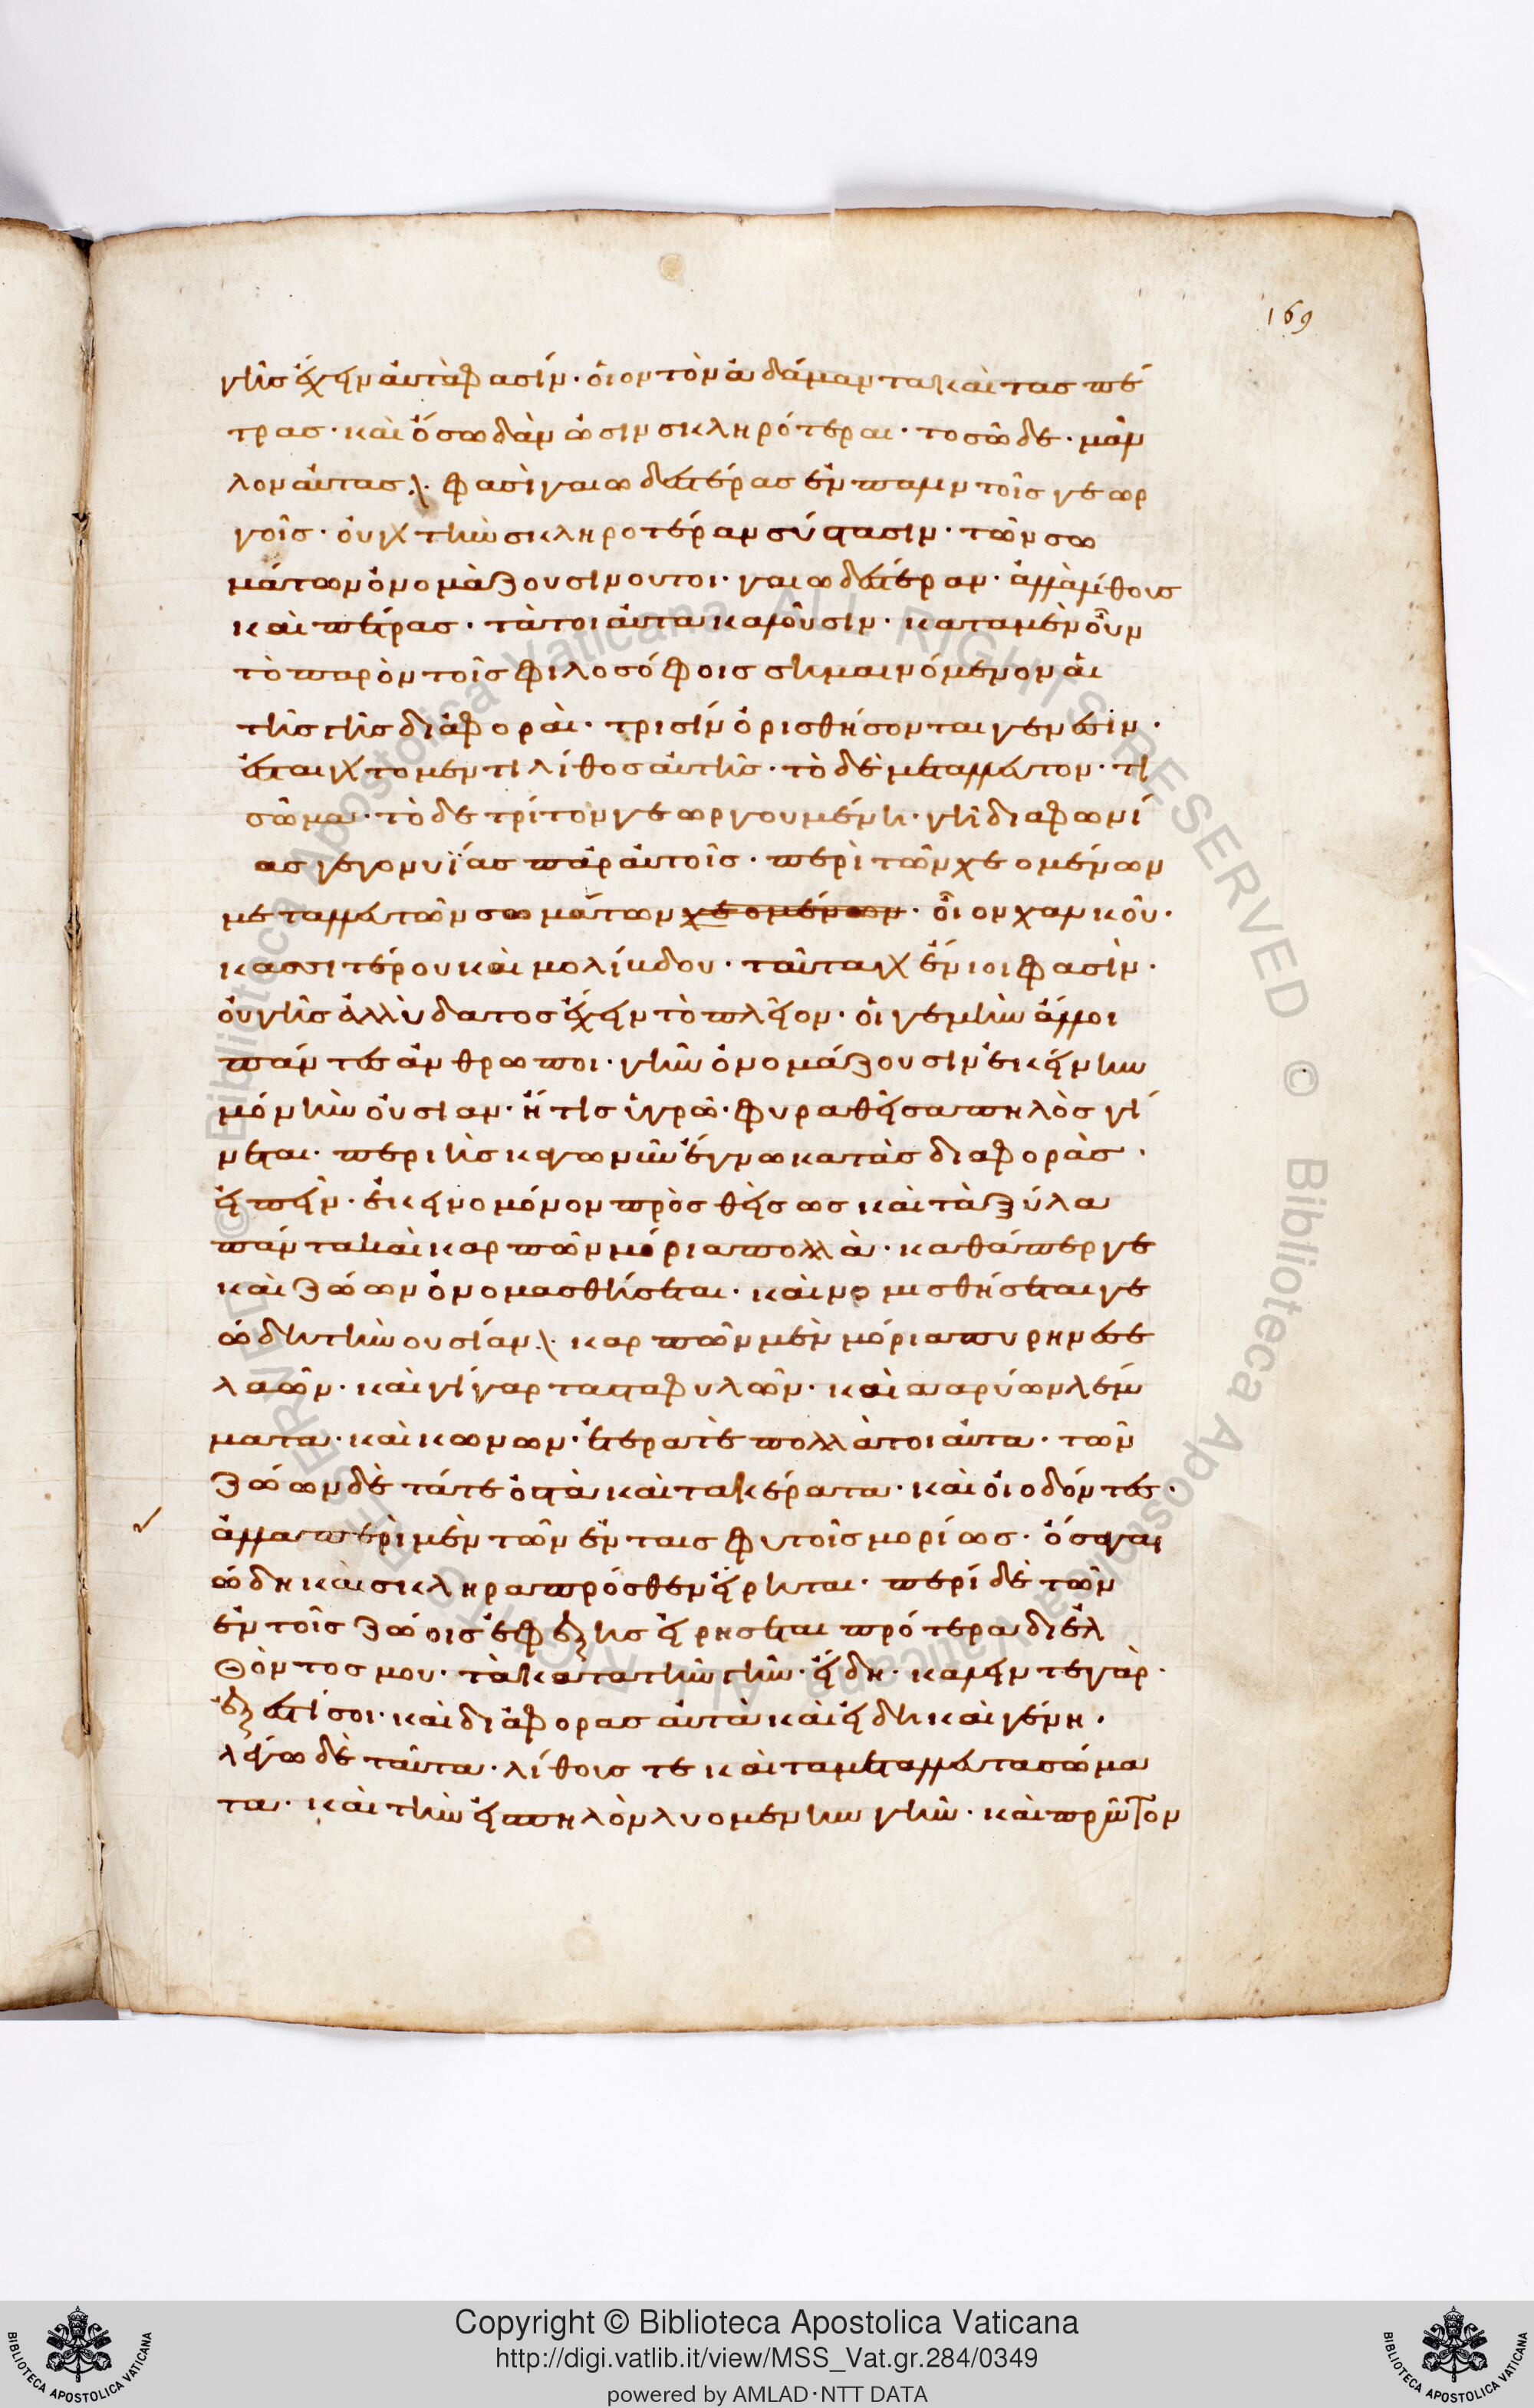 169
γῆς ἔχειν αὐτὰ φασίν· οἷον τὸν ἀδάμαντα καὶ τας πέ
τρας· καὶ ὅσω δἂν ὦσιν σκληρότεραι· τοσῶδε· μᾶλ
λον αὐτας· φασὶ γαιωδεστέρας εἶναι παλιν τοῖς γεωρ
γοῖς· οὐχ τὴν σκληροτέραν σύστασιν· τῶν σω
μάτων ὀνομάζουσιν οντοι· γαιωδεστέραν· ἀλλὰ λίθους
καὶ πέτρας· τὰ τοιαῦτα καλοῦσιν· κατα μὲν οὖν
τὸ παρὸν τοῖς φιλοσόφοις σημαινόμενον αἱ
τῆς γῆς διαφοραὶ· τρισὶν ὁρισθήσονται γένεσιν·
το μέν τι λίθος αὐτῆς· τὸ δὲ μεταλλευτον· τὶ
σῶμα· τὸ δε τρίτον γεωργουμένη· γῆ διαφωνί
ας γεγονυίας παρ αὐτοῖς· περὶ τῶν χεομένων
μεταλλευτῶν σωμάτων χεομένων· οἷον χαλκοῦ·
κασσιτέρου καὶ μολίβδου· ταῦτα ἔνιοι φασὶν·
οὐ γῆς ἀλλ ὕδατος ἔχειν τὸ πλεῖον· οἱ γε μὴν ἄλλοι
πάντες ἄνθρωποι· γῆν ὀνομάζουσιν ἐκείνην
μόνην οὐσίαν· ἥτις ὑγρῶ· φυραθεῖσα πηλὸς γί
νεται· περι ἧς κἀγω νῦν ἔγνωκα τὰς διαφορὰς·
εἰπεῖν· ἐκεινο μόνον προσθεὶς ὡς καὶ τὰ ξύλα
πάντα καὶ καρπῶν μόρια πολλὰ· καθάπερ γε
καὶ ζώων ὀνομασθήσεται· καὶ νομισθήσεται γε
ώδη τὴν ουσίαν· καρπῶν μὲν μόρια πυρηνες ἐ
λαῶν· καὶ γίγαρτα σταφυλῶν· καὶ καρύων λέμ
ματα· καὶ κώνων· ἕτερα τὲ πολλὰ τοιαῦτα· τῶν
ζώων δὲ τά τε ὀστὰ καὶ τα κέρατα· καὶ οἱ οδόντες·
ἀλλα περὶ μὲν τῶν ἐν ταις φυτοῖς μορίως· ὅσα γαι
ώδη καὶ σκληρα πρόσθεν εἴρηται· περί δὲ τῶν
ἐν τοῖς ζώοις ἐφεξῆς εἰρησεται πρότερα διελ
θόντος μου· τὰ κατα τὴν γῆν· εἴδη· καλεῖν τε γὰρ·
ἔξεστί σοι· καὶ διαφορας αὐτὰ καὶ εἴδη καὶ γένη·
λέγω δὲ ταῦτα· λίθους τε καὶ τα μεταλλευτα σώμα
τα· καὶ τὴν εἰς πηλὸν λυομένην γῆν· καὶ πρῶτον
Copyright © Biblioteca Apostolica Vaticana
http://digi.vatlib.it/view/MSS_Vat.gr.284/0349
powered by AMLAD·NTT DATA